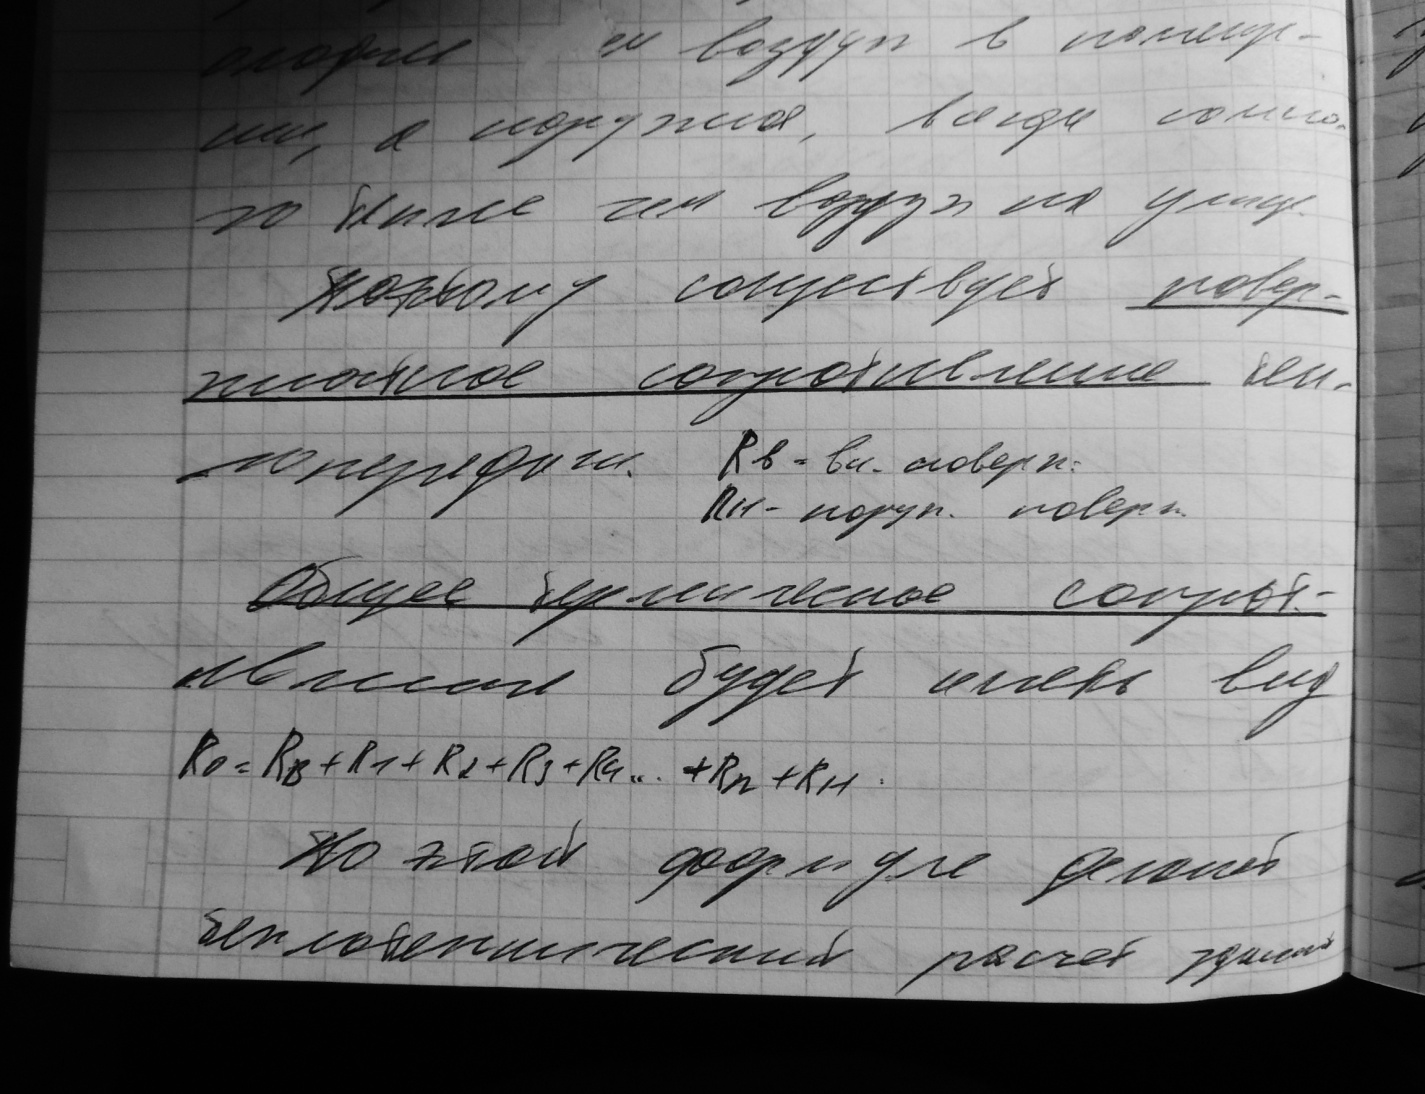 чем воздух в помеще-
нии, а наружная, всегда
то выше чем воздух на улице.
Поэтому существует повер-
хностное сопротивление теп-
лопередачи. Rв - вн. поверх.
Rн - наруж. поверх.
Общее термическое сопрот-
ивления будет иметь вид
R0 = Rв + R1 + R2 + R3 + R4... + Rn + Rн.
По этой формуле делают
теплотехнический расчет зданий